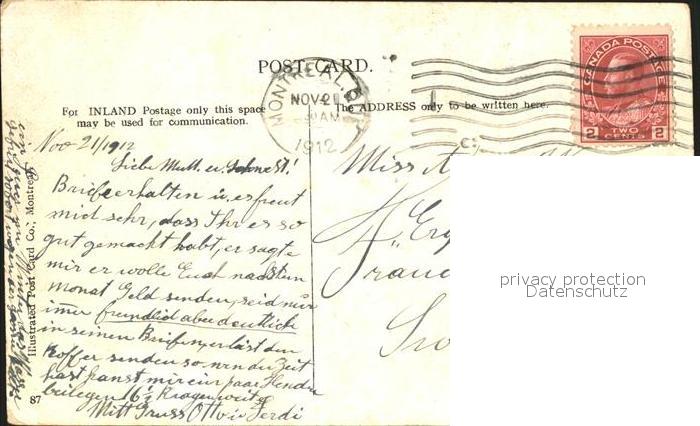 POST CARD.
MONTREAL
NOV 21
AM
1912
CANADA POSTAGE
2 TWO CENTS 2
For INLAND Postage only this space
may be used for communication.
The ADDRESS only to be written here.
Nov 21/1912
Liebe Mutt. u.
Brief erhalten u. es freut
mich sehr, dass Ihr es so
gut gemacht habt, er sagte
mir er wolle Euch nächsten
monat Geld senden, seid nur
immer freundlich aber deutlich
in seinen Briefen, er lässt den
Koffer senden so wen du Zeit
hast kanst mir ein paar Hemden
beilegen 16½ Kragenweite
Mitt Gruss Otto u. Ferdi
Miss
Illustrated Post Card Co., Montreal
87
privacy protection
Datenschutz